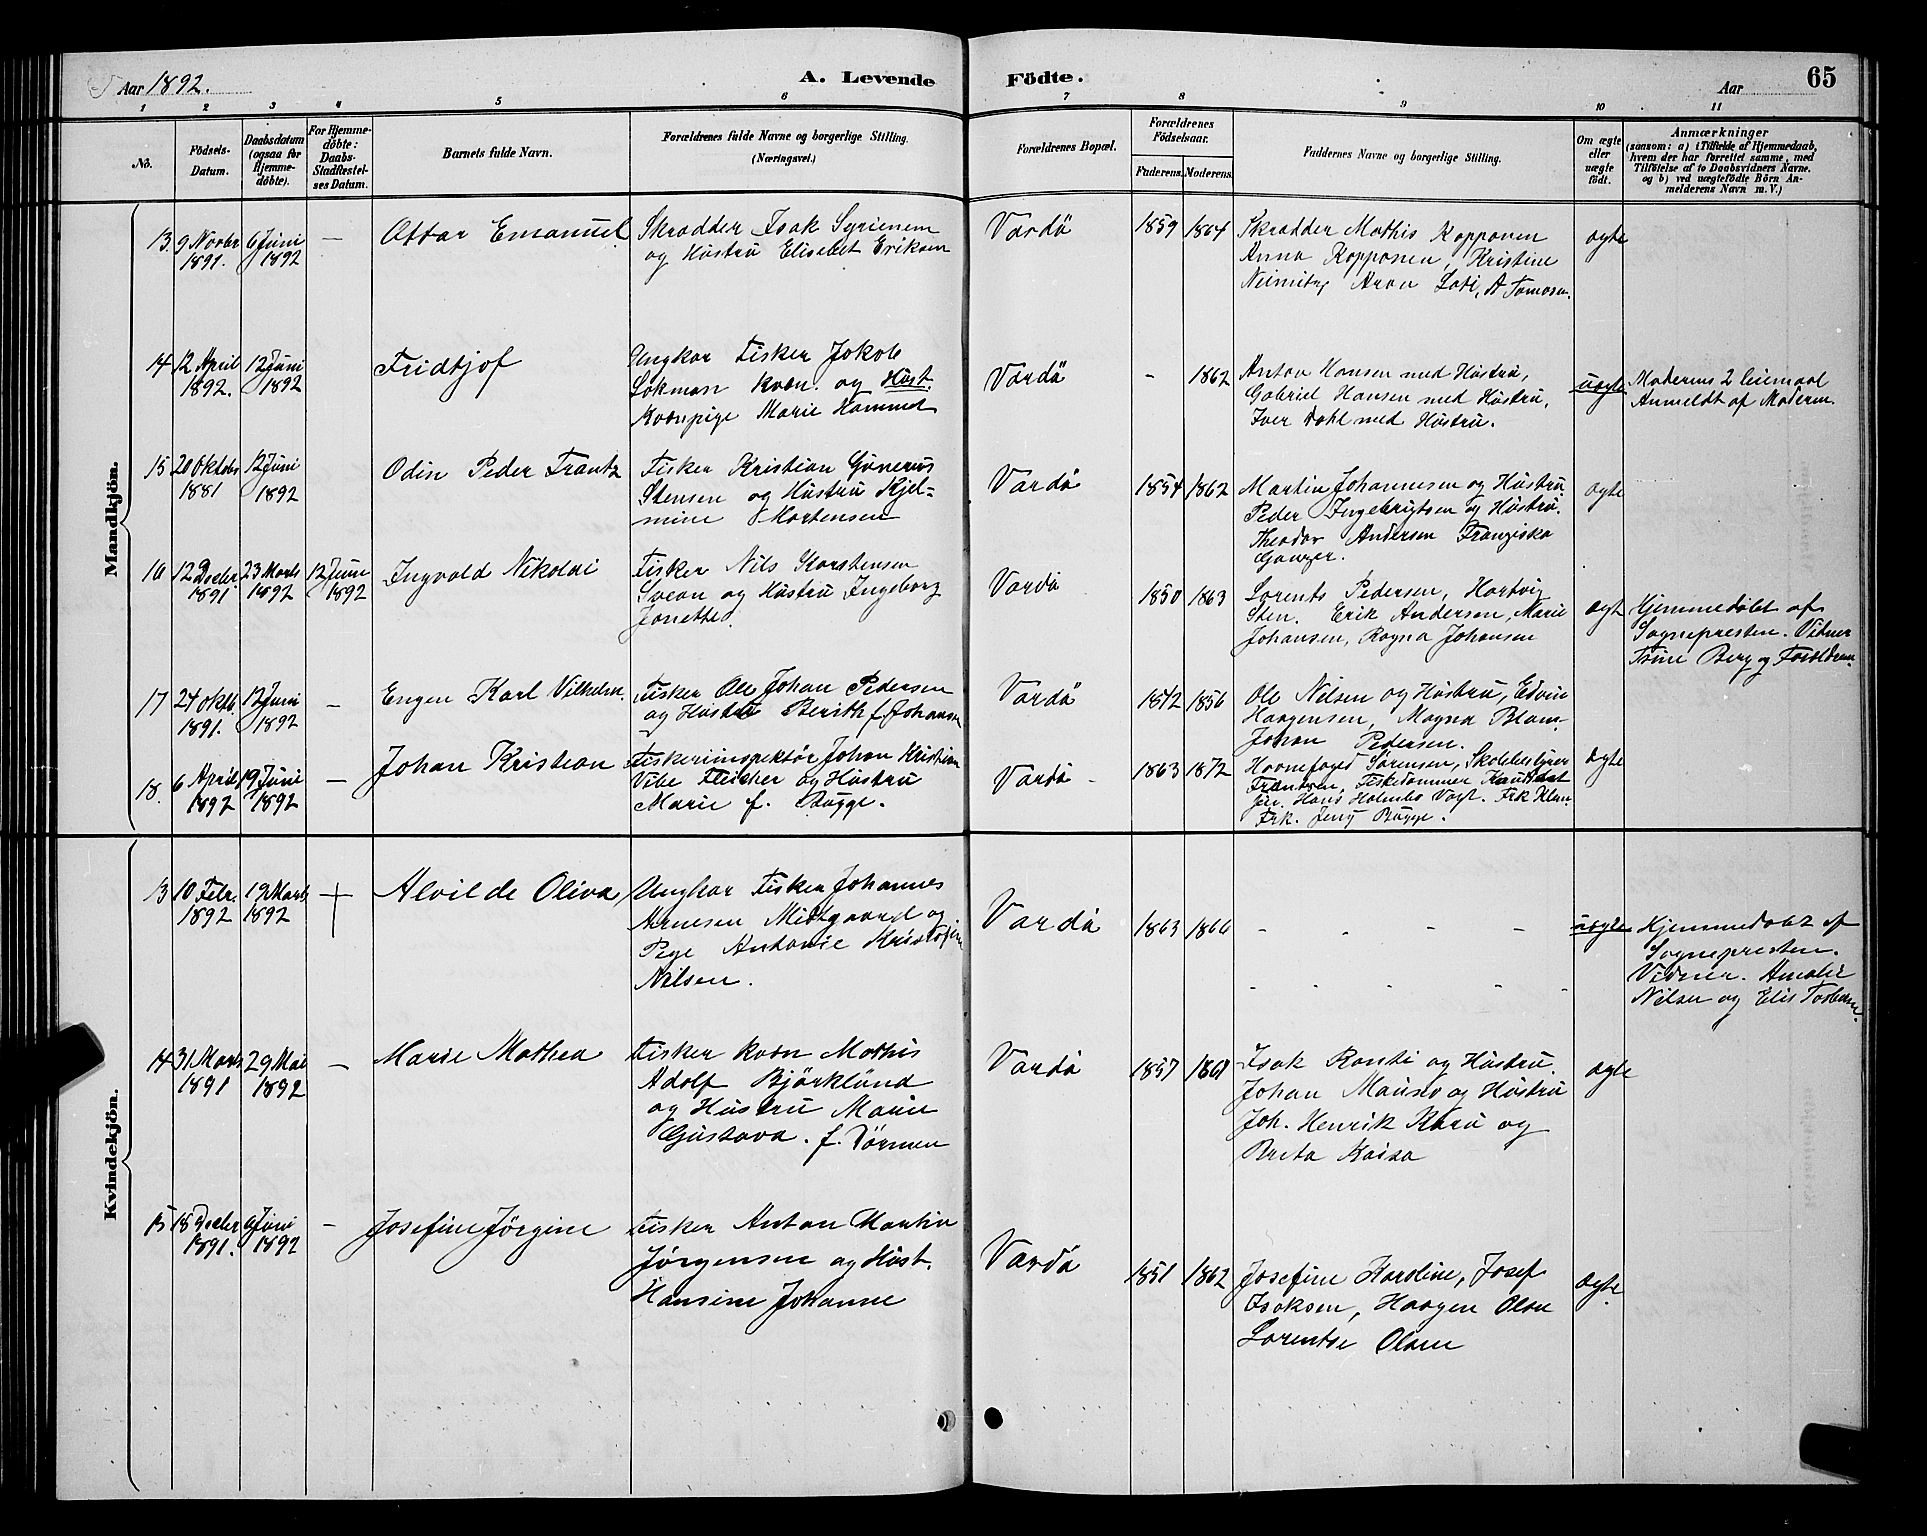 Aar 1892.
A. Levende
Födte.
Aar
65
1 2 3 4 5 6 7 8 9 10 11
No.
Födsels-
Datum.
Daabsdatum
(ogsaa for
Hjemme-
döbte).
For Hjemme-
döbte:
Daabs-
Stadfæstel-
ses Datum.
Barnets fulde Navn.
Forældrenes fulde Navne og borgerlige Stilling.
(Næringsvei.)
Forældrenes Bopæl.
Forældrenes
Födselsaar.
Faderens. Moderens.
Faddernes Navne og borgerlige Stilling.
Om ægte
eller
uægte
födt.
Anmærkninger
(saasom: a) i Tilfælde af Hjemmedaab,
hvem der har forrettet samme, med
Tilföielse af to Daabsvidners Navne,
og b) ved uægtefödte Börn An-
melderens Navn m. V.)
Mandkjön.
13 9 Novbr
1891.
6 Juni
1892
—
Ottar Emanuel
Skrædder Isak Syrienem
og Hustru Elisabet Eriksen
Vardö
1859 1864
Skrædder Mathis Kopponen
Anna Kopponen, Kristine
Aron Loti, A Tomosen.
ægte
14 12 April
1892.
12 Juni
1892
Fridtjof
Ungkar Fisker Jakob
Lokman kvæn. og Hust.
Kvænpige Marie Hammed
Vardö
- 1862
Anton Hansen med Hustru,
Gabriel Hansen med Hustru,
Iver Dahl med Hustru.
uægte
Moderens 2 Leiemaal
Anmeldt af Moderen.
15 20 Oktobr
1881
12 Juni
1892
Odin Peder Frantz
Fisker Kristian Gunerius
Stensen og Hustru Hjel-
mine Mortensen
Vardö
1854 1862
Martin Johannesen og Hustru.
Peder Ingebrigtsen og Hustru.
Theodor Andersen Franziska
Ganzer.
ægte
16 12 Decbr
1891
23 Marts
1892
12 Juni
1892
Ingvald Nikolai
Fisker Nils Karstensen
Svean og Hustru Ingeborg
Jonette.
Vardö
1850 1863
Lorents Pedersen, Hartvig
Sten. Erik Andersen, Marie
Johansen, Ragna Johansen
ægt
Hjemmedöbt af
Sognepresten. Vidner
Trine Berg og Forældrene
17 24 oktb.
1891.
12 Juni
1892
—
Engen Karl Vilhelm.
Fisker Ole Johan Pedersen
og Hustru Berith f. Johansen
Vardö
1842 1856
Ole Nilsen og Hustru, Edvin
Haagensen, Magna Blom-
Johan Pedersen.
18. 6 April
1892
19 Juni
1892
—
Johan Kristian
Fiskeriinspektör Johan Kristian
Vibe Fleischer og Hustru
Marie f. Bugge.
Vardö -
1863 1872
Havnefoged Sörensen, Skolebestyrer
Frantzen, Fiskedommer Kandidat
jür. Hans Holmbo Vogt. Frk Klem
Frk. Jeny Bugge.
ægte
Kvindekjön.
13 10 Febr.
1892
19 Marts
1892
+
Alvilde Oliva
Ungkar Fisker Johannes
Arnesen Midtgaard og
Pige Antonie Kristofine
Nilsen.
Vardö
1863 1866
- - - -
- - - - -
uægte
Hjemmedöbt af
Sognepresten.
Vidner. Amalie
Nilsen og Elis
14 31 Marts
1891
29 Mai
1892
—
Marie Mathea
Fisker kvæn Mathis
Adolf Björklund
og Hustru Marie
Gustava. f. Törmen
Vardö
1857 1861
Isak Ranti og Hustru.
Johan Mauno og Hustru
Joh. Henrik Karu og
Brita Kaisa
ægte
15 18 Decbr
1891.
6 Juni
1892
-
Josefine Jörgine
Fisker Anton Martin
Jörgensen og Hust.
Hansine Johanne
Vardö
1851 1862
Josefine Karoline, Josef
Isaksen, Haagen Olsen
Lorentse Olsen
ægte